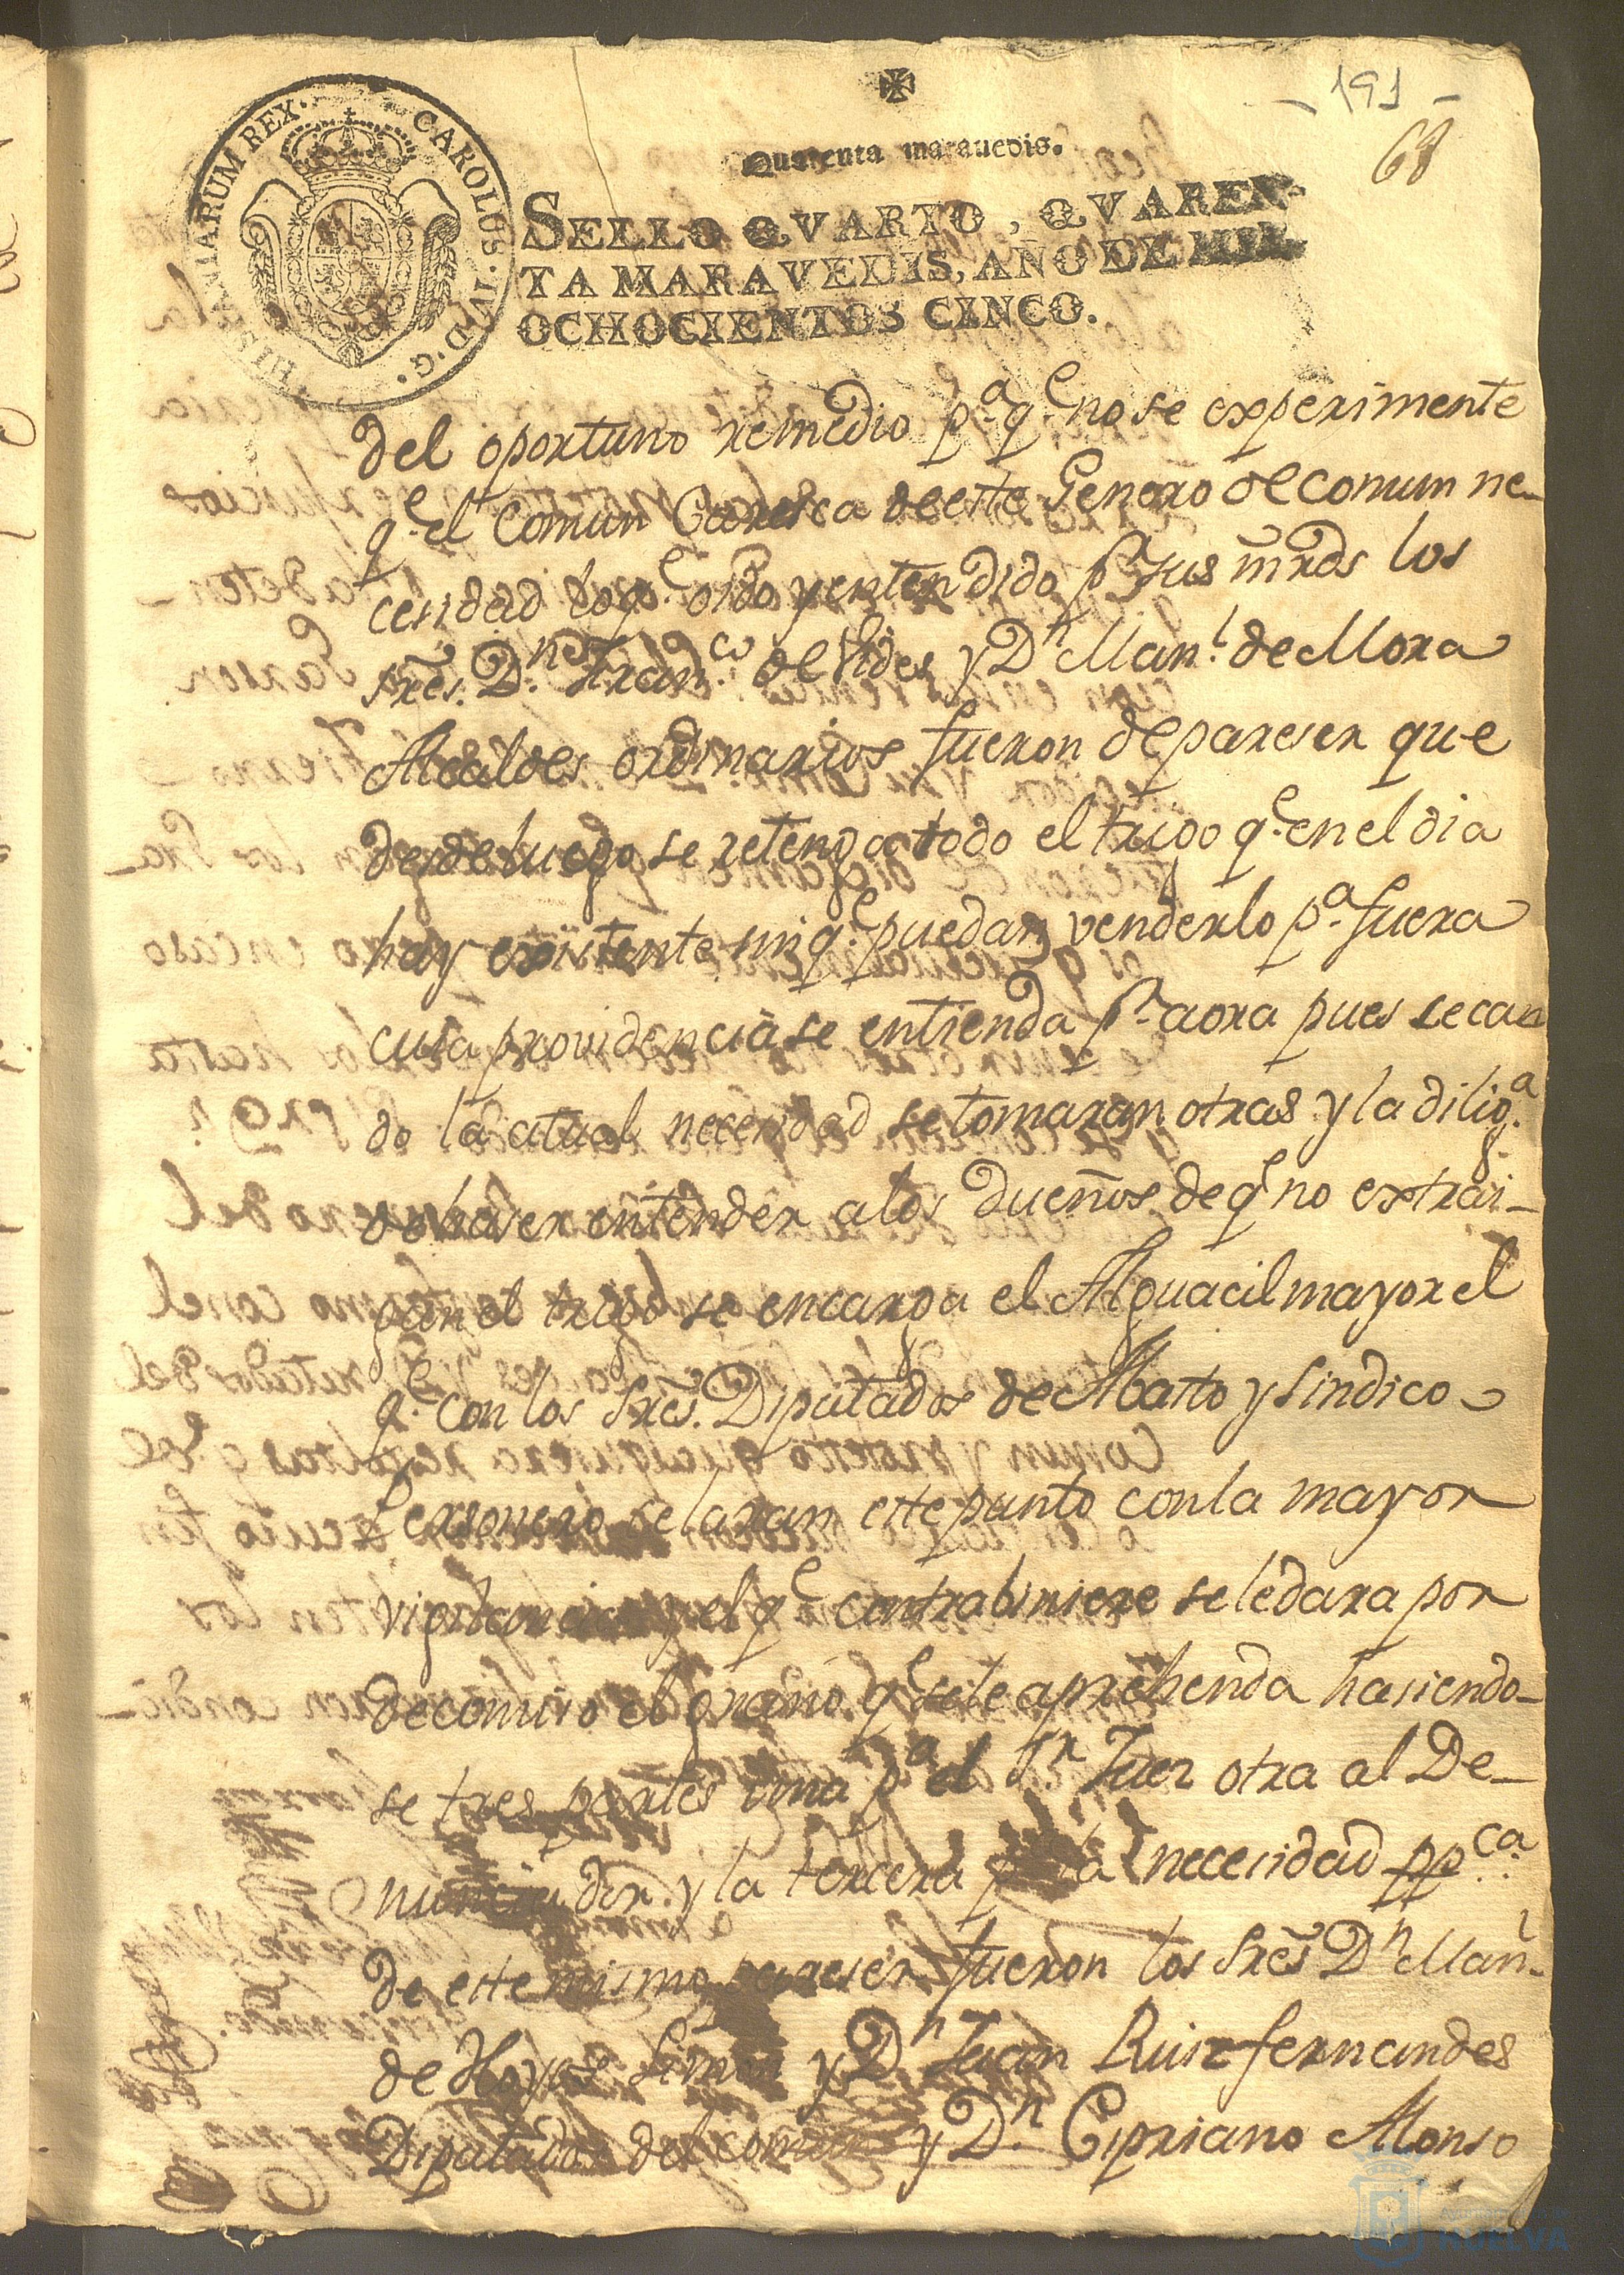 - 191 -
68
Quarenta marauedis.
HISPANIARUM REX. CAROLUS. IV. D. G.
SELLO QVARTO, QVAREN-
TA MARAVEDIS, AÑO DE MIL
OCHOCIENTOS CINCO.
del oportuno remedio pa. qe. no se experimente
qe. el Comun Caresca de este Genero de comun ne-
cesidad lo qe. oido y entendido pr. sus mrds los
sres. Dn. Franco. de Vides y Dn Manl. de Mora
Alcaldes ordinarios fueron de pareser que
desde luego se retenga todo el trigo qe. en el dia
hay existente sin qe. puedan venderlo pa. fuera
cuia providencia se entienda pr. aora pues secan
do la atual necesidad se tomaran otras y la diliga.
de haser entender a los dueños de qe no extrai-
gan el trigo se encarga el Alguacil mayor el
qe. con los Sres. Diputados de Abasto y Sindico
Personero selaran este punto con la mayor
vigilancia y el qe contrabiniere se le dara por
decomiso el grano qe se le aprehenda hasiendo-
se tres partes una pa el Sr Juez otra al De-
nunciador y la tercera pa la necesidad ppca.
de este mismo pareser fueron los Sres Dn Manl.
de Hoyos Limon y Dn Juan Ruiz fernandes
Diputados del comun y Dn. Cipriano Alonso
HUELVA